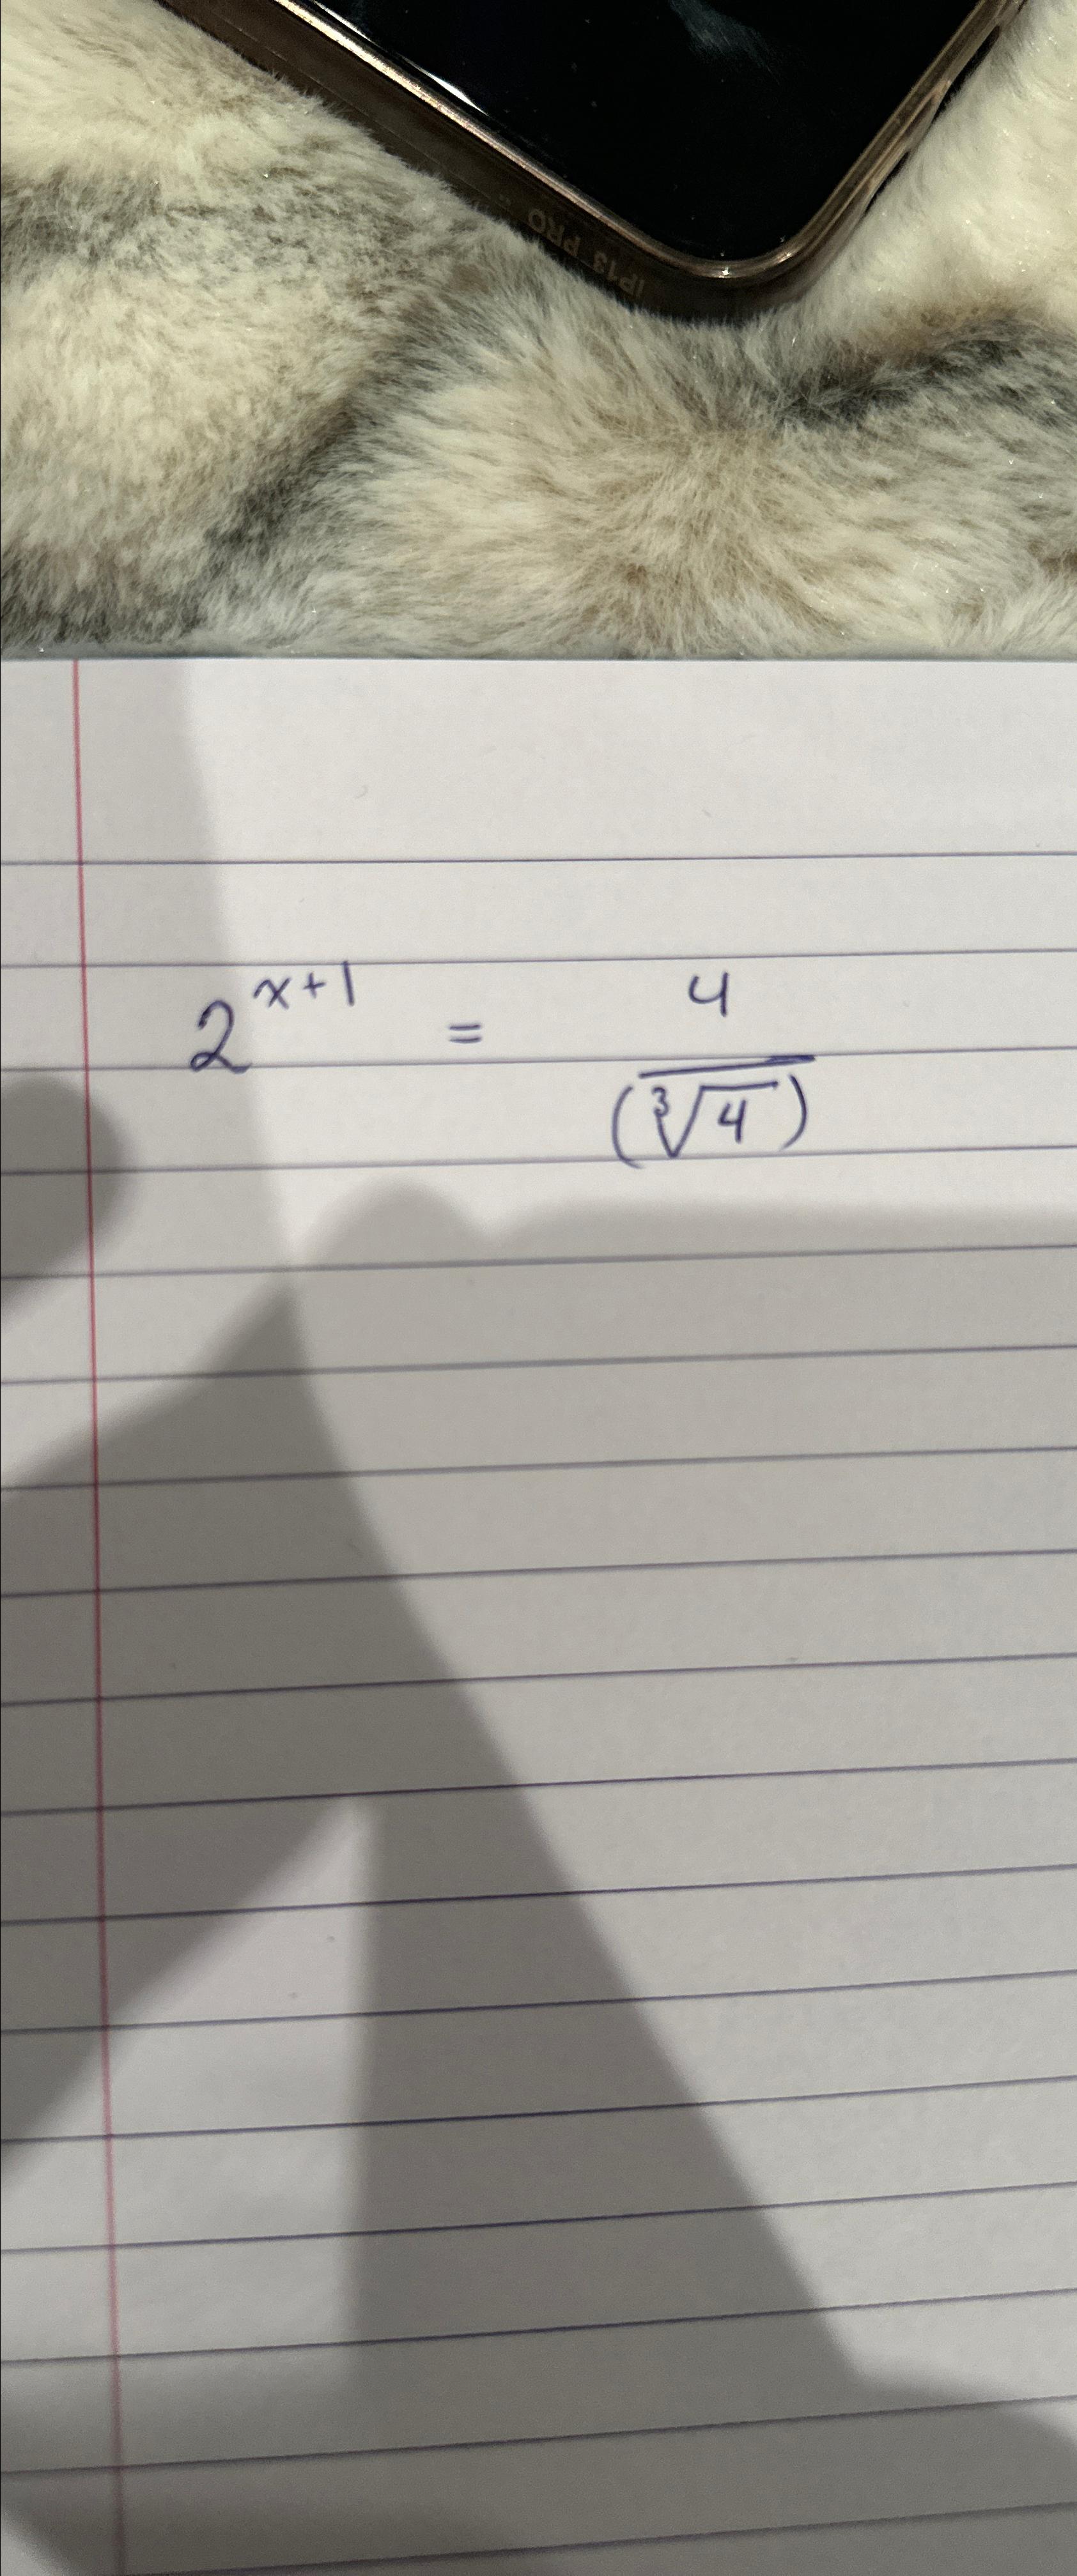 IP13 PRO
2^{x+1} = \frac{4}{(\sqrt[3]{4})}